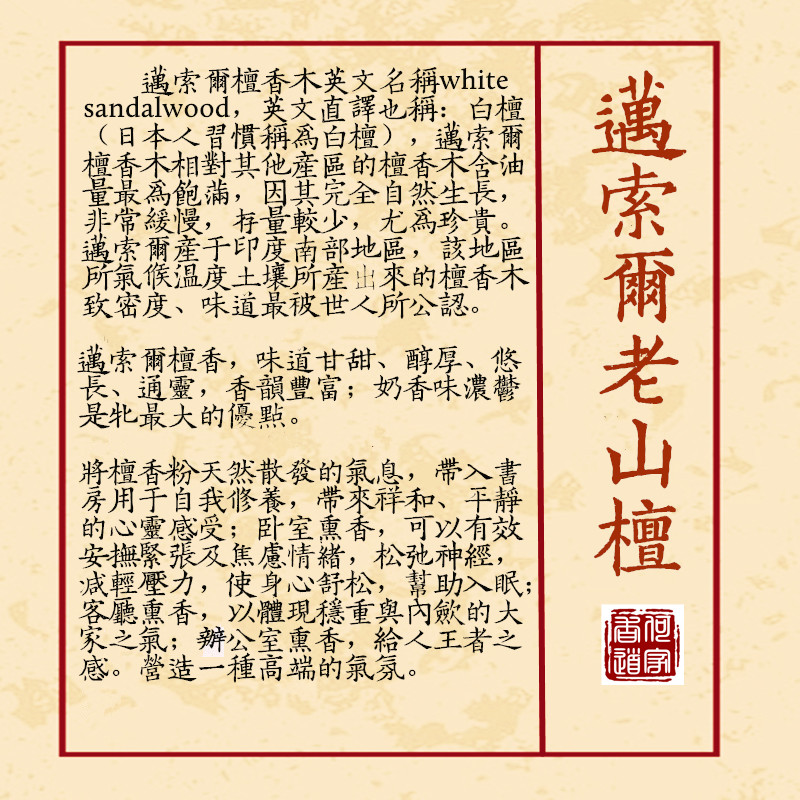 邁索爾檀香木英文名稱white
sandalwood，英文直譯也稱：白檀
（日本人習慣稱爲白檀），邁索爾
檀香木相對其他產區的檀香木含油
量最爲飽滿，因其完全自然生長，
非常緩慢，存量較少，尤爲珍貴。
邁索爾產于印度南部地區，該地區
所氣候溫度土壤所產出來的檀香木
致密度、味道最被世人所公認。
邁索爾檀香，味道甘甜、醇厚、悠
長、通靈，香韻豐富；奶香味濃鬱
是牝最大的優點。
將檀香粉天然散發的氣息，帶入書
房用于自我修養，帶來祥和、平靜
的心靈感受；卧室熏香，可以有效
安撫緊張及焦慮情緒，松弛神經，
减輕壓力，使身心舒松，幫助入眠；
客廳熏香，以體現穩重與內歛的大
家之氣；辦公室熏香，給人王者之
感。營造一種高端的氣氛。
邁索爾老山檀
何家香道